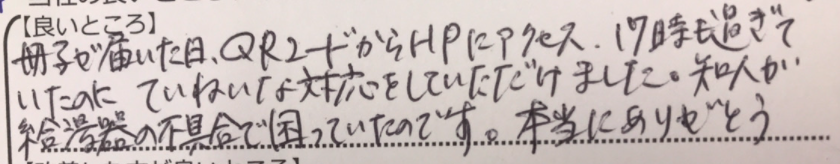 【良いところ】
冊子が届いた日、QRコードからHPにアクセス.17時も過ぎて
いたのに ていねいな対応をしていただけました。知人が
給湯器の不具合で困っていたのです。本当にありがとう